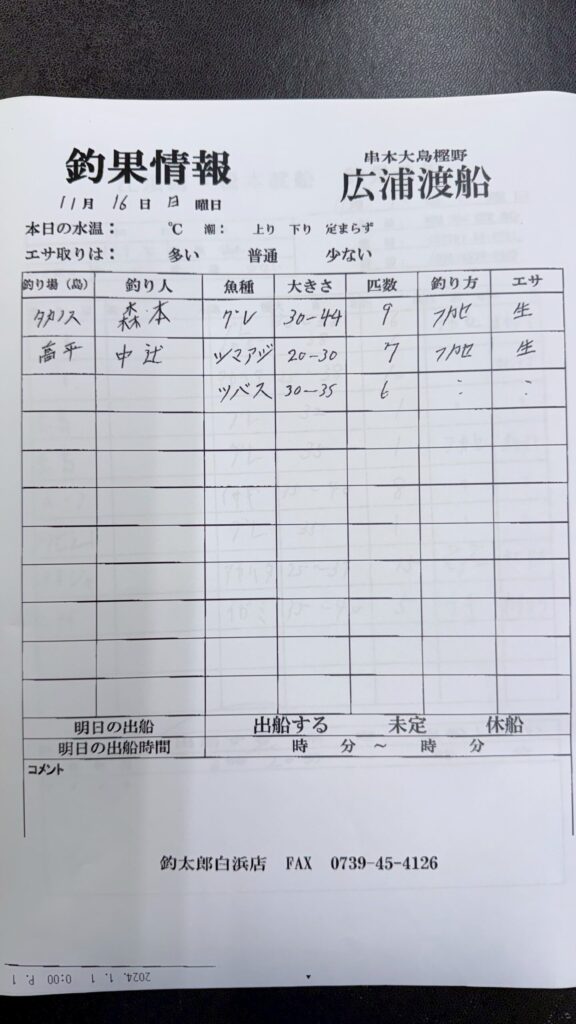 釣果情報
串本大島樫野
広浦渡船
11月 16日 日 曜日
本日の水温： ℃ 潮： 上り 下り 定まらず
エサ取りは： 多い 普通 少ない
釣り場（島） 釣り人 魚種 大きさ 匹数 釣り方 エサ
タカノス 森本 グレ 30-44 9 フカセ 生
高平 中辻 ツマアジ 20-30 7 フカセ 生
ツバス 30-35 6 : :
明日の出船 出船する 未定 休船
明日の出船時間 時 分 ～ 時 分
コメント
釣太郎白浜店 FAX 0739-45-4126
2024. 1. 1 0:00 P. 1